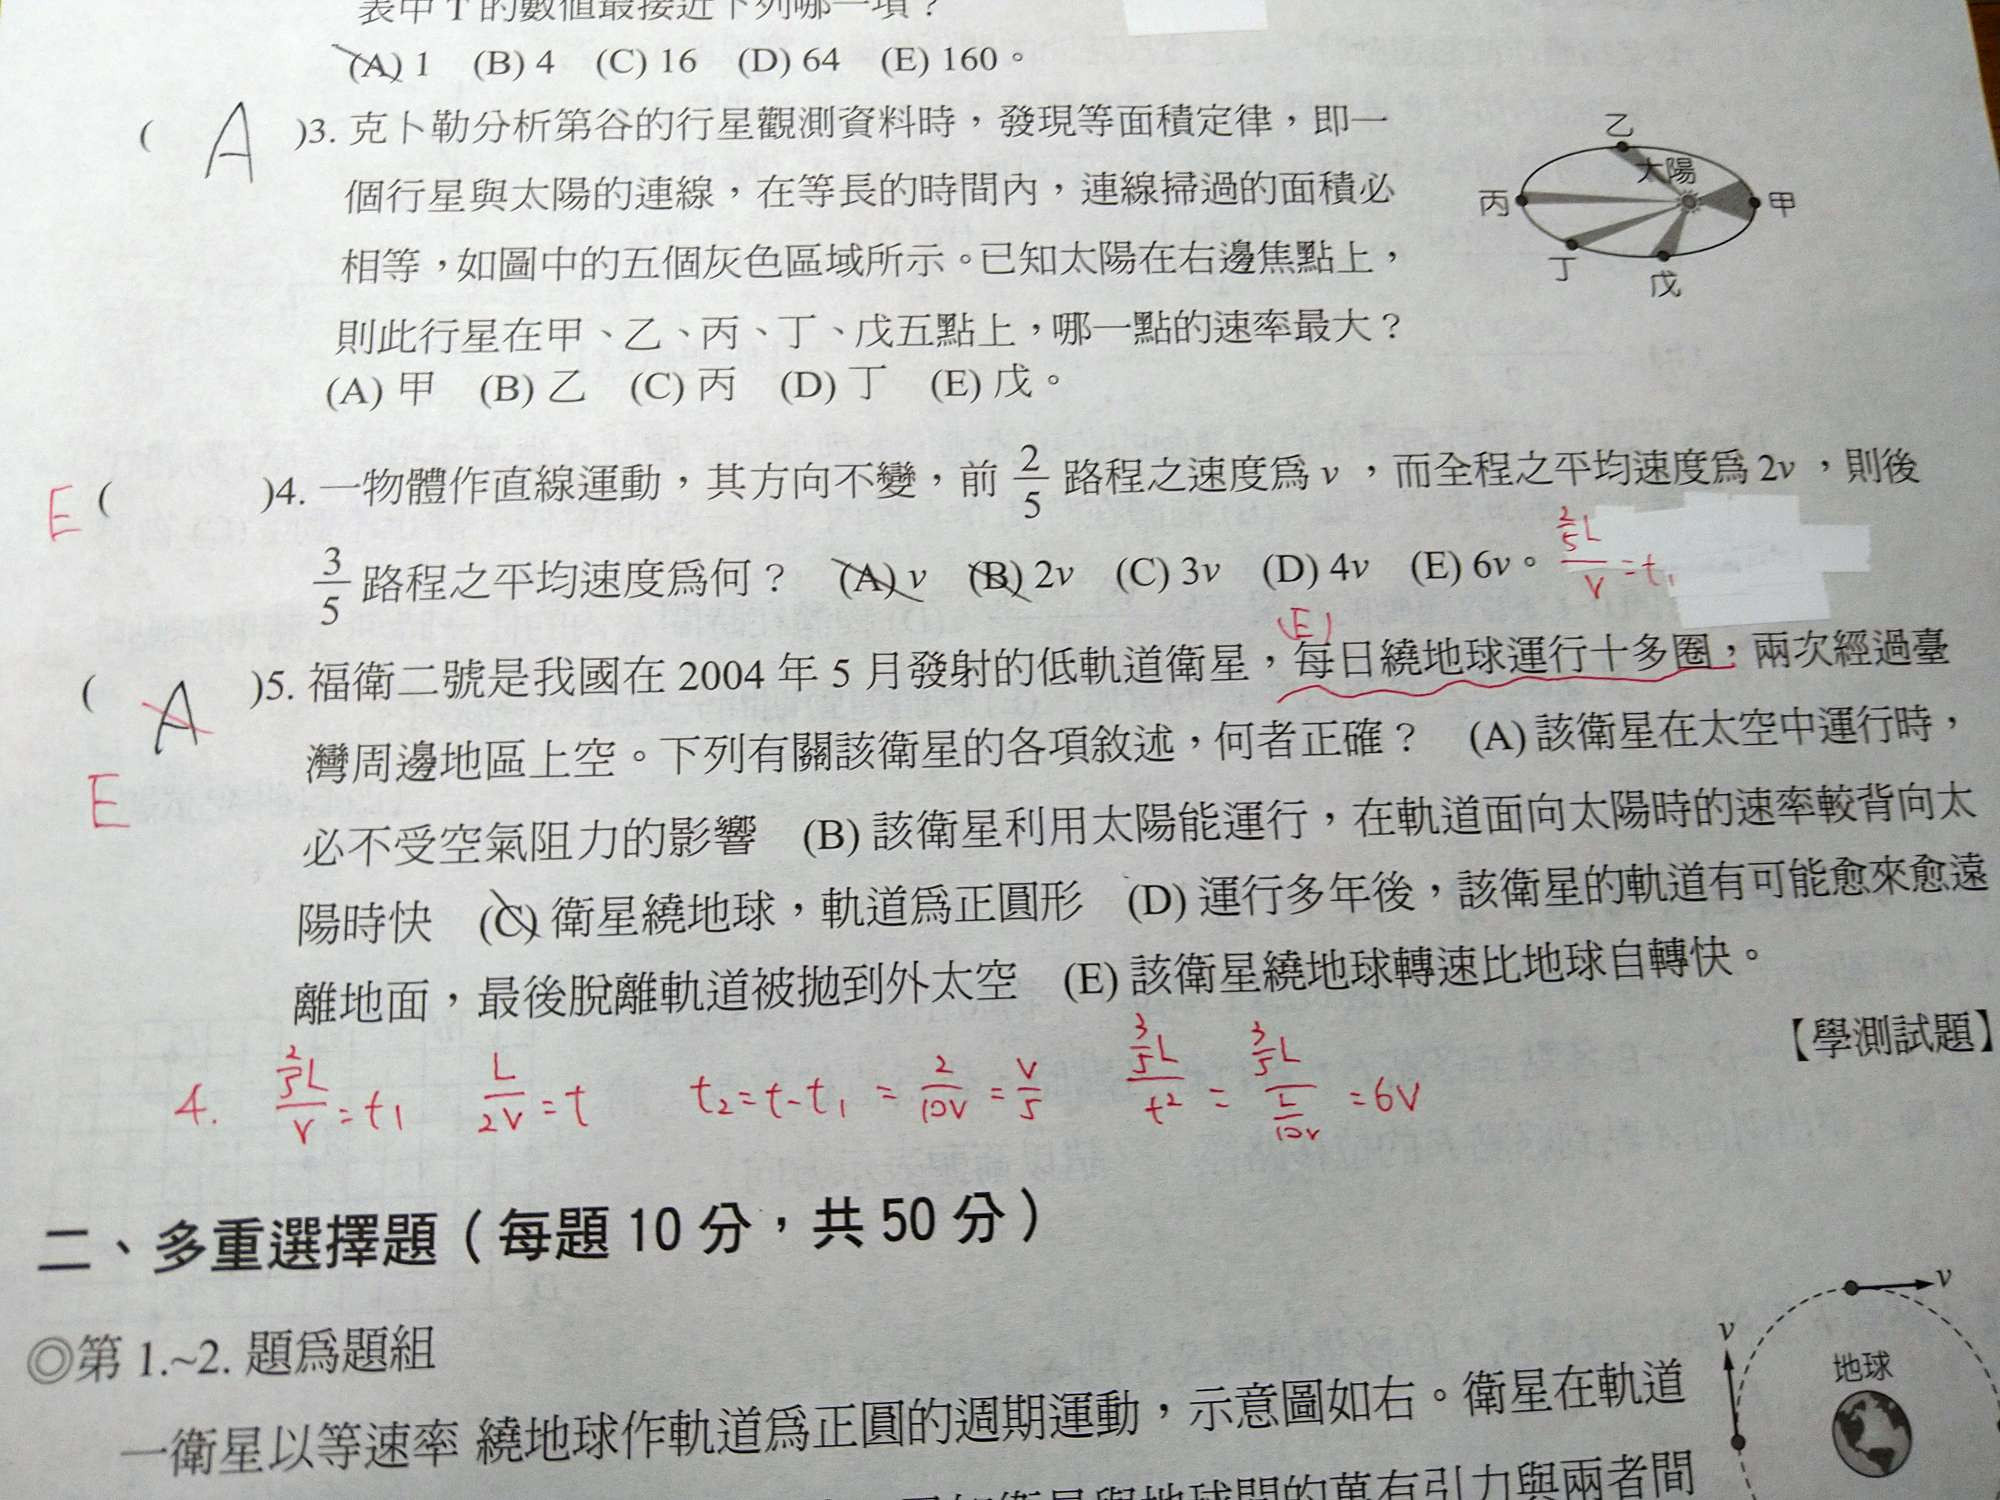 表中 T 的數值最接近下列哪一項？
(A) 1 (B) 4 (C) 16 (D) 64 (E) 160。
( A )3. 克卜勒分析第谷的行星觀測資料時，發現等面積定律，即一
個行星與太陽的連線，在等長的時間內，連線掃過的面積必
相等，如圖中的五個灰色區域所示。已知太陽在右邊焦點上，
則此行星在甲、乙、丙、丁、戊五點上，哪一點的速率最大？
(A) 甲 (B) 乙 (C) 丙 (D) 丁 (E) 戊。
乙
太陽
丙
甲
丁
戊
E ( )4. 一物體作直線運動，其方向不變，前 2/5 路程之速度爲 v ，而全程之平均速度爲 2v ，則後
3/5 路程之平均速度爲何？ (A) v (B) 2v (C) 3v (D) 4v (E) 6v。
2/5 L / v = t₁
(E)
( A )5. 福衛二號是我國在 2004 年 5 月發射的低軌道衛星，每日繞地球運行十多圈，兩次經過臺
E
灣周邊地區上空。下列有關該衛星的各項敘述，何者正確？ (A) 該衛星在太空中運行時，
必不受空氣阻力的影響 (B) 該衛星利用太陽能運行，在軌道面向太陽時的速率較背向太
陽時快 (C) 衛星繞地球，軌道爲正圓形 (D) 運行多年後，該衛星的軌道有可能愈來愈遠
離地面，最後脫離軌道被拋到外太空 (E) 該衛星繞地球轉速比地球自轉快。
【學測試題】
4. 2/5 L / v = t₁ L / 2v = t t₂ = t - t₁ = 2 / 10v = v / 5 3/5 L / t2 = 3/5 L / L/10v = 6v
二、多重選擇題（每題 10 分，共 50 分）
◎第 1.~2. 題爲題組
一衛星以等速率 繞地球作軌道爲正圓的週期運動，示意圖如右。衛星在軌道
衛星與地球間的萬有引力與兩者間
v
v
地球